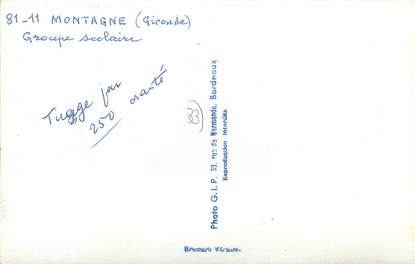 81-11 MONTAGNE (Gironde)
Groupe scolaire
Tirage par
250
33
Photo G.I.P. 33, rue de Marmande, Bordeaux
Reproduction Interdite